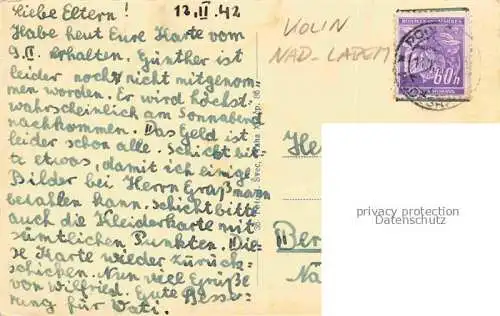 Liebe Eltern! 13.II.42
Habe heut Eure Karte vom
9.II. erhalten. Günther ist
leider noch nicht mitgenom-
men worden. Er wird höchst-
wahrscheinlich am Sonnabend
nachkommen. Das Geld ist
leider schon alle. Schickt bit-
te etwas, damit ich einige
Bilder bei Herrn Graßmann
bezahlen kann. Schickt bitte
auch die Kleiderkarte mit
sämtlichen Punkten. Die-
se Karte wieder zurück-
schicken. Nun viel Grüße
von Wilfried. Gute Besse-
rung für Vati.
KOLIN
NAD-LABEM
60h
He
Ber
Na
privacy protection
Datenschutz